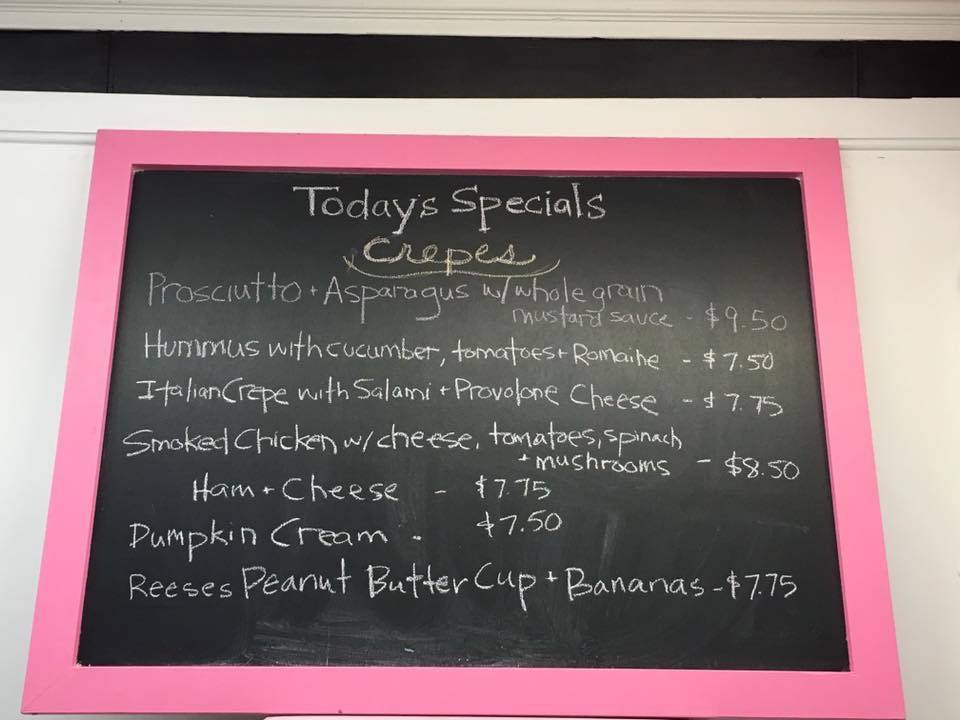 Today's Specials
Crepes
Prosciutto + Asparagus w/ whole grain
mustard sauce - $9.50
Hummus with cucumber, tomatoes + Romaine - $7.50
Italian Crepe with Salami + Provolone Cheese - $7.75
Smoked Chicken w/ cheese, tomatoes, spinach
+ mushrooms - $8.50
Ham + Cheese - $7.75
Pumpkin Cream - $7.50
Reeses Peanut Butter Cup + Bananas - $7.75